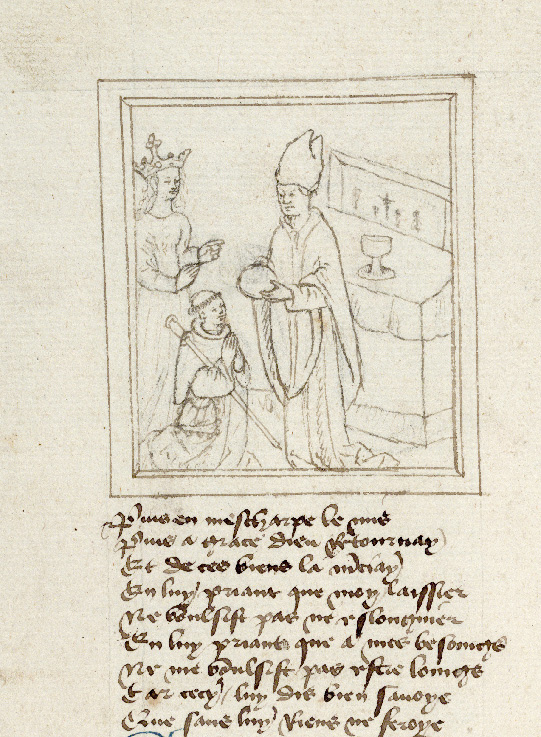 Puis en mescharpe le mis
Puis a grace dieu retournay
Et de ces biens la m̄ciay
En luy priant que moy laissier
Ne voulsist pas ne eslongnier
En luy priant que a mes besoings
Ne me voulsist pas estre loings
Car cecy luy dis bien savoye
Que sans luy riens ne feroye